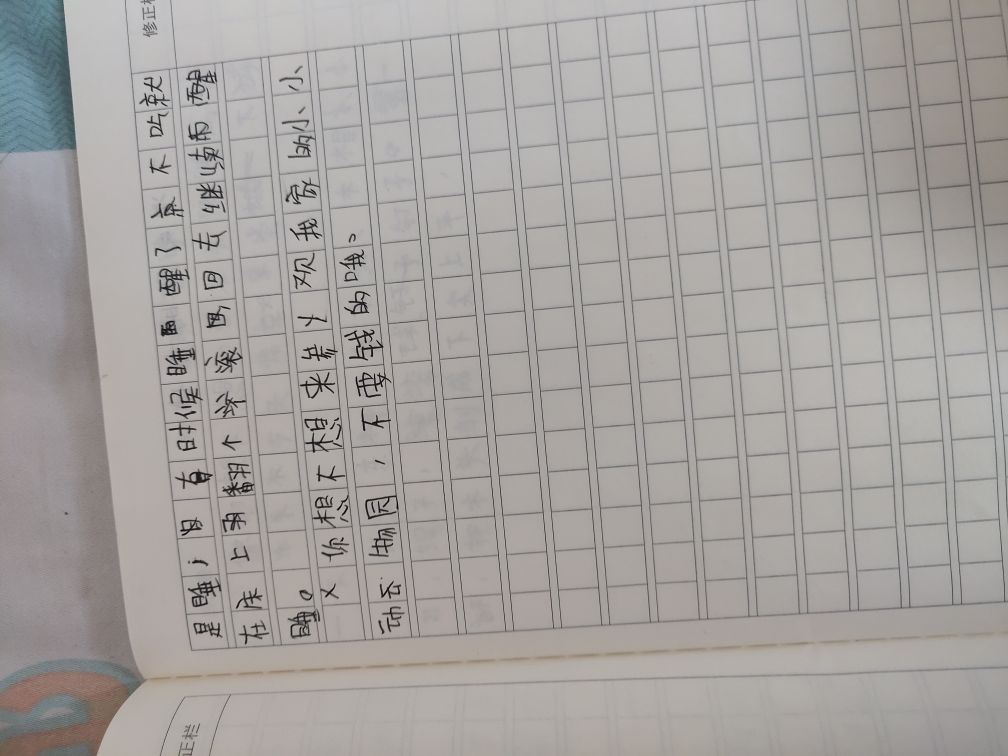 修正栏
是睡，没有时候睡醒了觉不吃就
在床上再翻个滚回去继续而醒
睡。
你想不想来参观我家的小、小、
动物园，不要钱的哦。
正栏